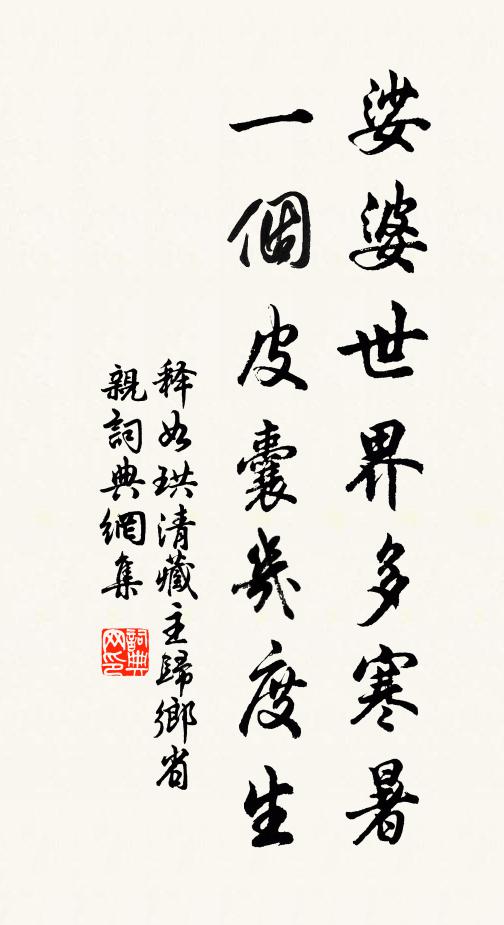 娑婆世界多寒暑
一個皮囊幾度生
释如珙清藏主歸鄉省
親詞典網集
詞典
网印